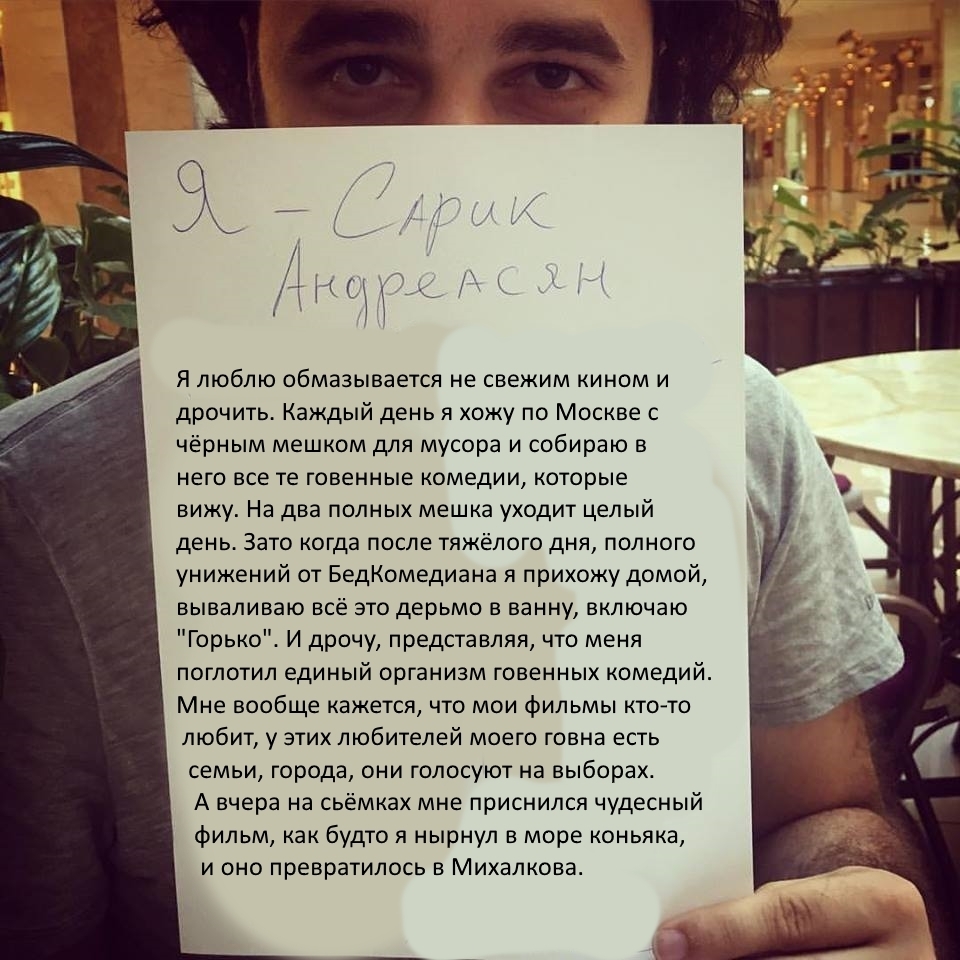 Я – Сарик
Андреасян
Я люблю обмазывается не свежим кином и
дрочить. Каждый день я хожу по Москве с
чёрным мешком для мусора и собираю в
него все те говенные комедии, которые
вижу. На два полных мешка уходит целый
день. Зато когда после тяжёлого дня, полного
унижений от БедКомедиана я прихожу домой,
вываливаю всё это дерьмо в ванну, включаю
"Горько". И дрочу, представляя, что меня
поглотил единый организм говенных комедий.
Мне вообще кажется, что мои фильмы кто-то
любит, у этих любителей моего говна есть
семьи, города, они голосуют на выборах.
А вчера на сьёмках мне приснился чудесный
фильм, как будто я нырнул в море коньяка,
и оно превратилось в Михалкова.